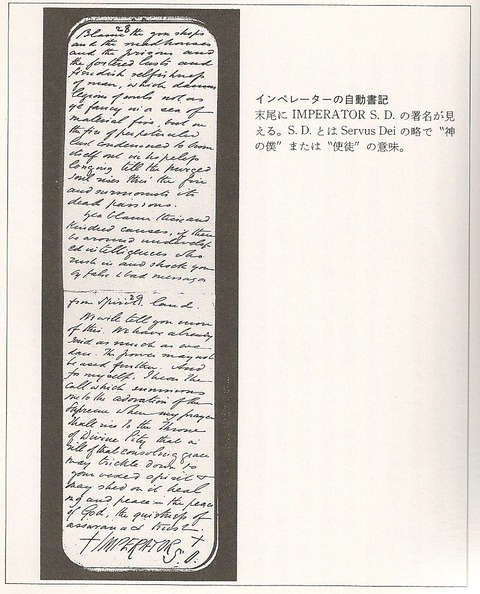 28
Blame the gin shops
and the madhouses
and the prisons and
the fostered lusts and
fiendish selfishness
of man, which damns
legions of souls not, as
ye fancy in a sea of
material fire, but in
the fire of perpetuated
lust condemned to burn
itself out in hopeless
longing till the purged
soul rises thro' the fire
and surmounts its
dead passions.
Yes blame these and
kindred causes, if there
be around undevelop
ed intelligences who
rush in and shock you
by false & bad messages
29
from Spirit land.
We will tell you more
of this. We have already
said as much as we
dare. The power may not
be used further. And
for myself, I hear the
call which summons
me to the adoration of the
Supreme when my prayer
shall rise to the Throne
of Divine Pity that a
rill of that consoling grace
may trickle down to
your vexed spirit &
may shed on it heal
ing and peace — the peace
of God, the quietness of
assurance & trust.
+ IMPERATOR +
S. D.
インペレーターの自動書記
末尾に IMPERATOR S. D. の署名が見
える。S. D. とは Servus Dei の略で “神
の僕” または “使徒” の意味。